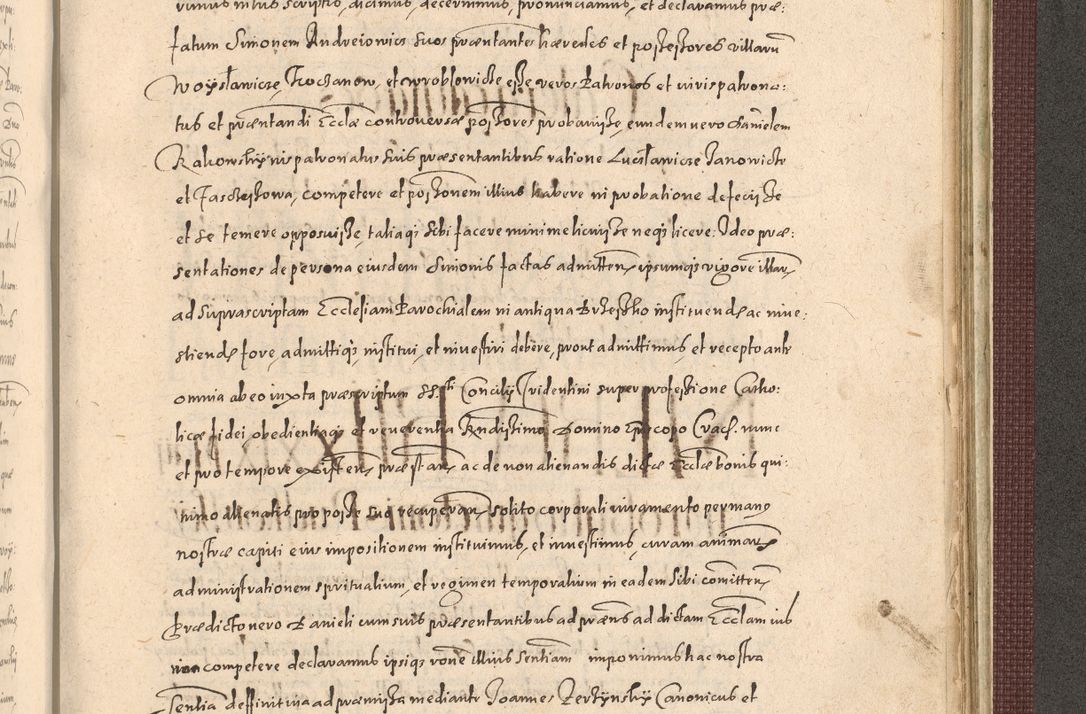 rimus in his scriptio, dicimus, decernimus, pronunciamus, et declaramus præ:
fatum Simonem Andreiowicz suos præntantes hæredes et possessores villarum
Woysławicze, Kochanow, et wroblowicze esse veros Patronos et iuris patrona:
tus et præntandi Eccłæ controversæ possores probavisse, eundem vero Danielem
Rakowskij iuris patronatus suis præsentantibus ratione Lucisławicze Janowicze
et Fascissowa, competere et possonem illius habere in probatione defecisse
et se temere opposuisse, taliaqs sibi facere minime licuisse neqs licere: Ideo præ:
sentationes de persona eiusdem Simonis factas admitten, ipsumqs vigore illar,
ad suprascriptam Ecclesiam Parochialem in antiqua Brzessko instituend ac inve:
stiend fore, admittiqs institui, et investiri debere, prout admittimus et recepto ante
omnia ab eo iuxta præscriptum SS.ti Concilij Tridentini super professione Catho:
licæ fidei, obedientiaqs et reverentia Rndissimo Domino Episcopo Crac. nunc
et pro tempore existen, præstan, ac de non alienandis dictæ Eccłæ bonis qui:
nimo alienatis pro posse suo recuperan, solito corporali iuramento per manq
nostræ capiti eius impositionem instituimus, et investimus, curam animar
administrationem spiritualium, et regimen temporalium in eadem sibi comitten,
Prædicto vero Danieli cum suis præsentantibus ad præns ad dictam Eccłam ius
non competere declaramus ipsiqs rone illius sentiam imponimus hac nostra
sentia deffinitiva ad præmissa mediante Joannes Zerzynskij Canonicus et